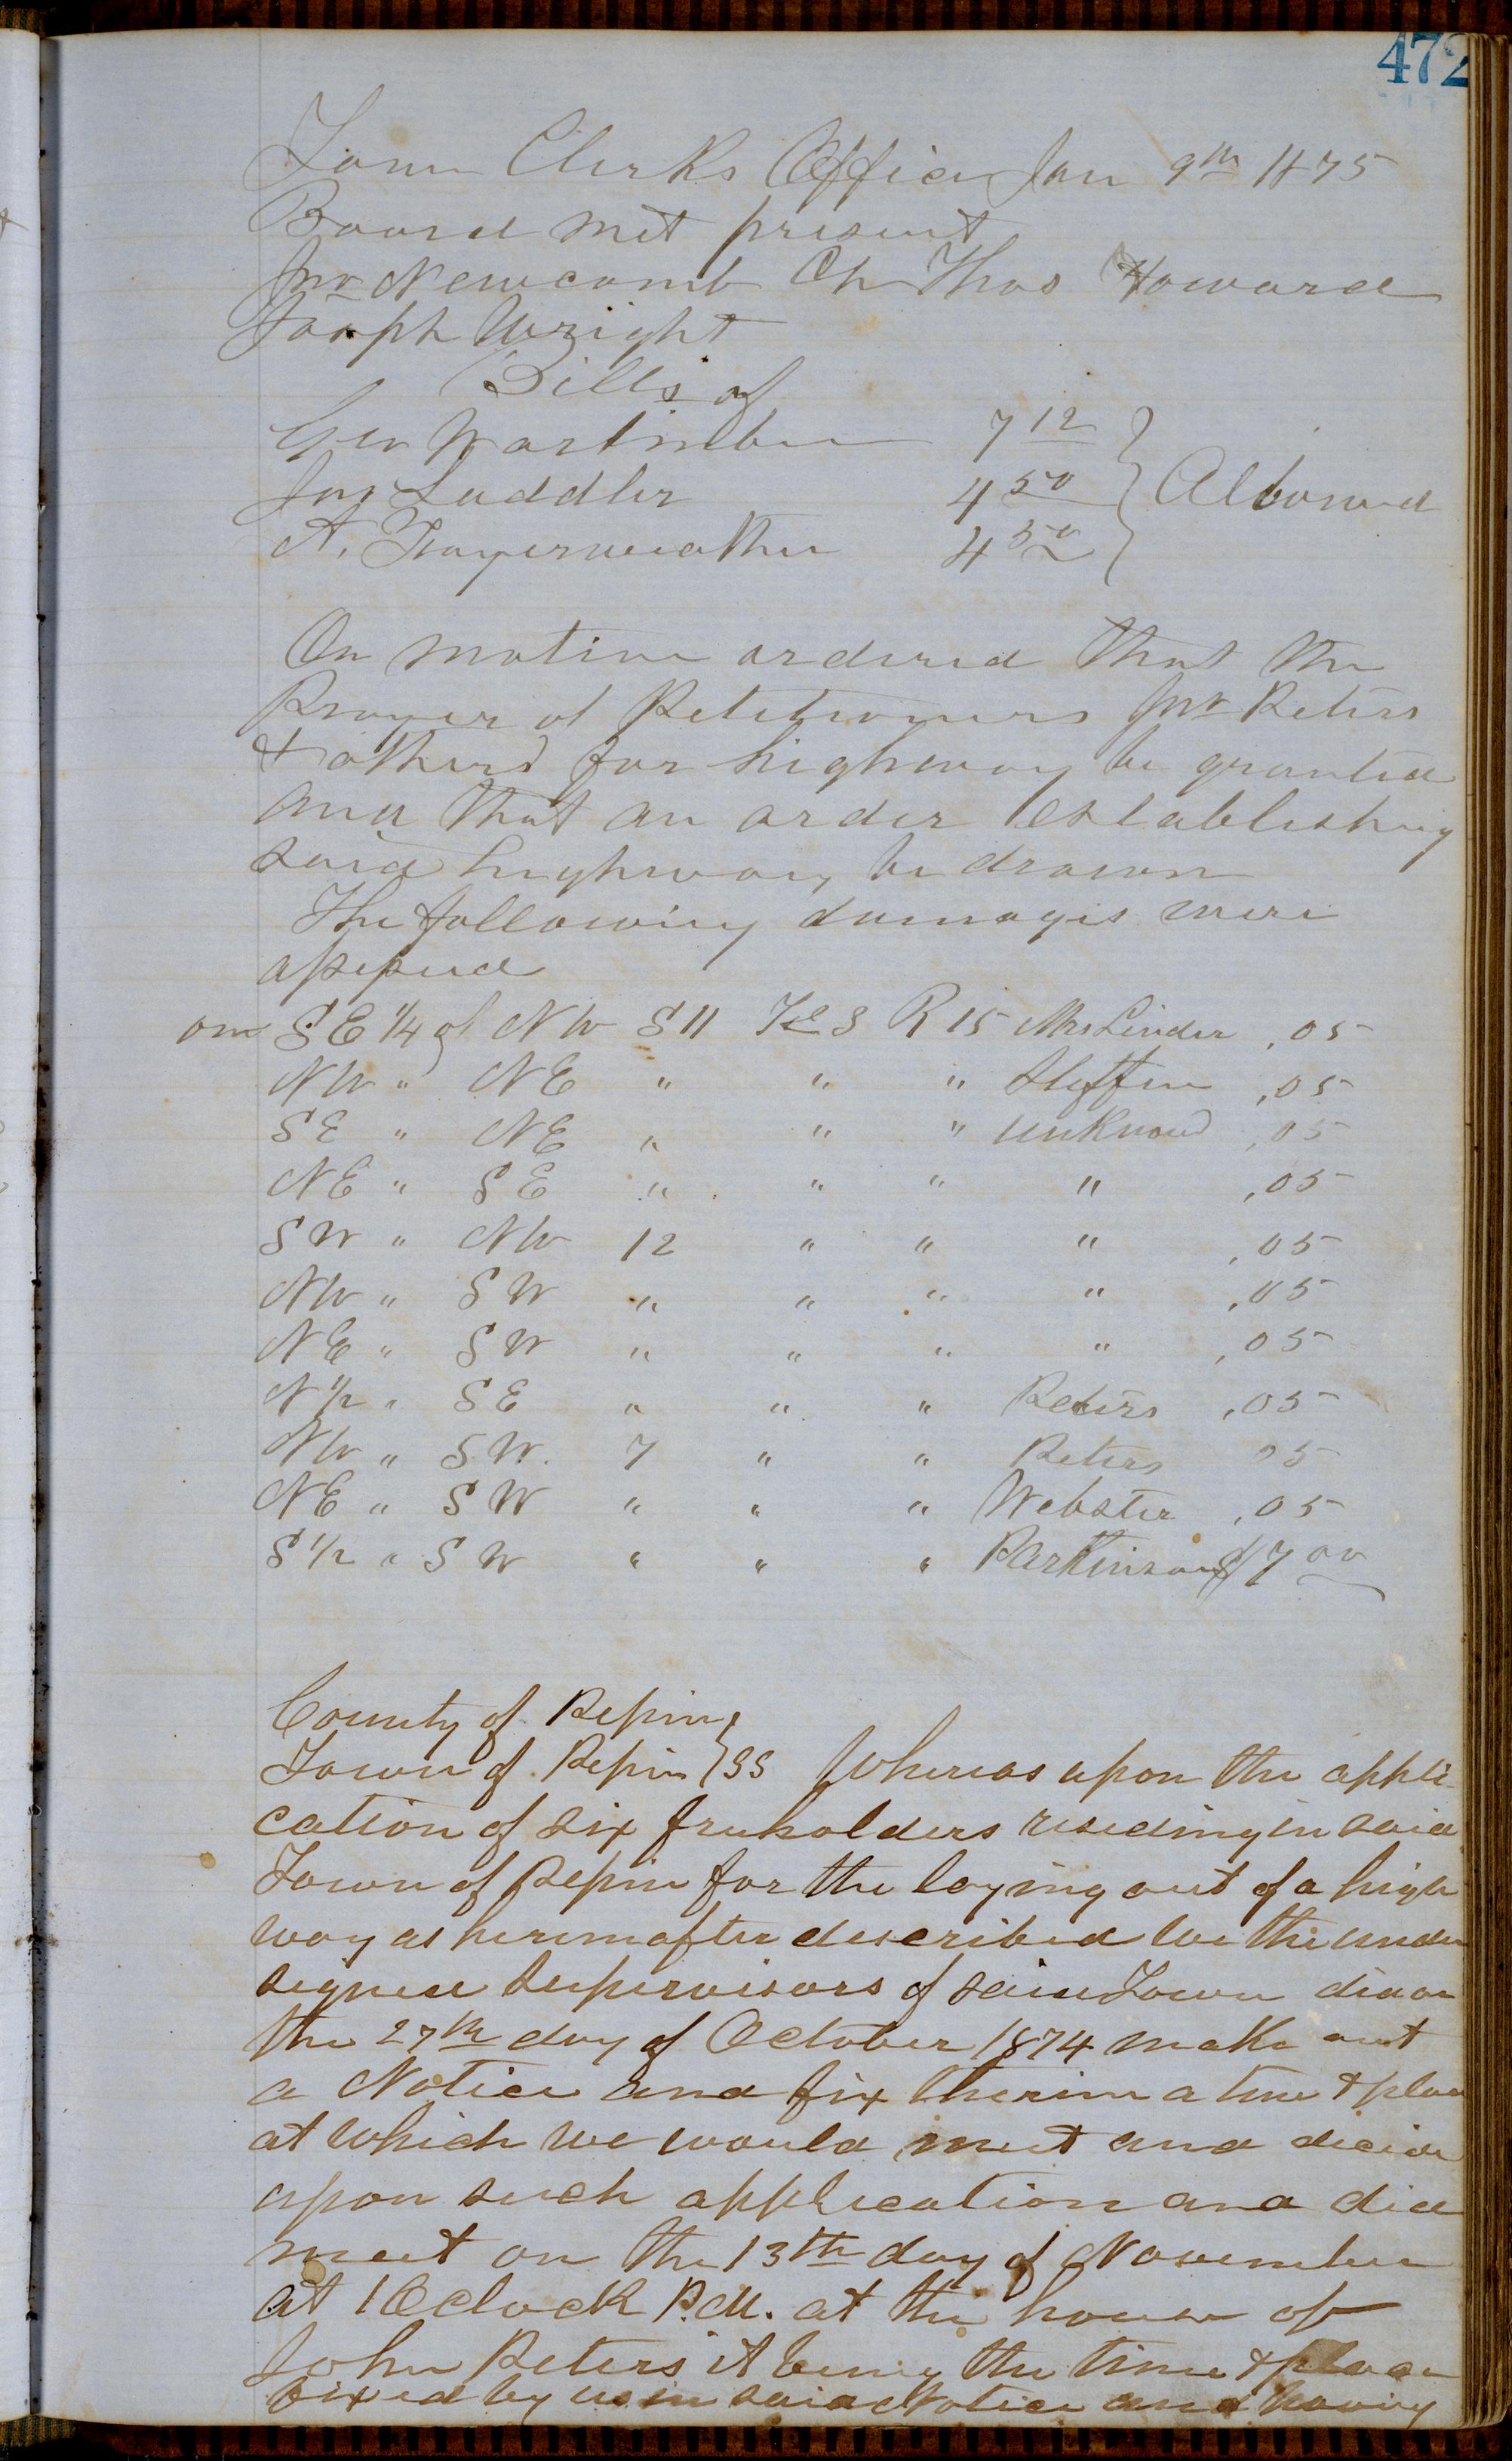 472
Town Clerks Office Jan 9th 1875
Board met present
Jno Newcomb Ch Thos Howard
Joseph Wright
Bills of
Geo 7 12
Jas Saddler 4 50 Allowed
A. Fayerweather 4 50
On motion ordered that the
Prayer of Petitioners Jno Peters
& others for highway be granted
and that an order establishing
said highway be drawn
The following damages were
assessed
on SE 1/4 of NW S 11 R 15 Mrs Linder ,05
NW " NE " " " Steffen ,05
SE " NE " " " unknown ,05
NE " SE " " " " ,05
SW " NW 12 " " " ,05
NW " SW " " " " ,05
NE " SW " " " " ,05
N 1/2 " SE " " " Peters ,05
NW " SW. 7 " " Peters 05
NE " SW " " " Webster ,05
S 1/2 " SW " " " Parkinson $7 00
County of Pepin
Town of Pepin } SS Whereas upon the appli
cation of six freeholders residing in said
Town of Pepin for the laying out of a high
way as hereinafter described we the under
signed Supervisors of said Town did on
the 27th day of October 1874 make out
a Notice and fix therein a time & place
at which we would meet and decide
upon such application and did
meet on the 13th day of November
at 1 Oclock P.M. at the house of
John Peters it being the time & place
fixed by us in said Notice and having